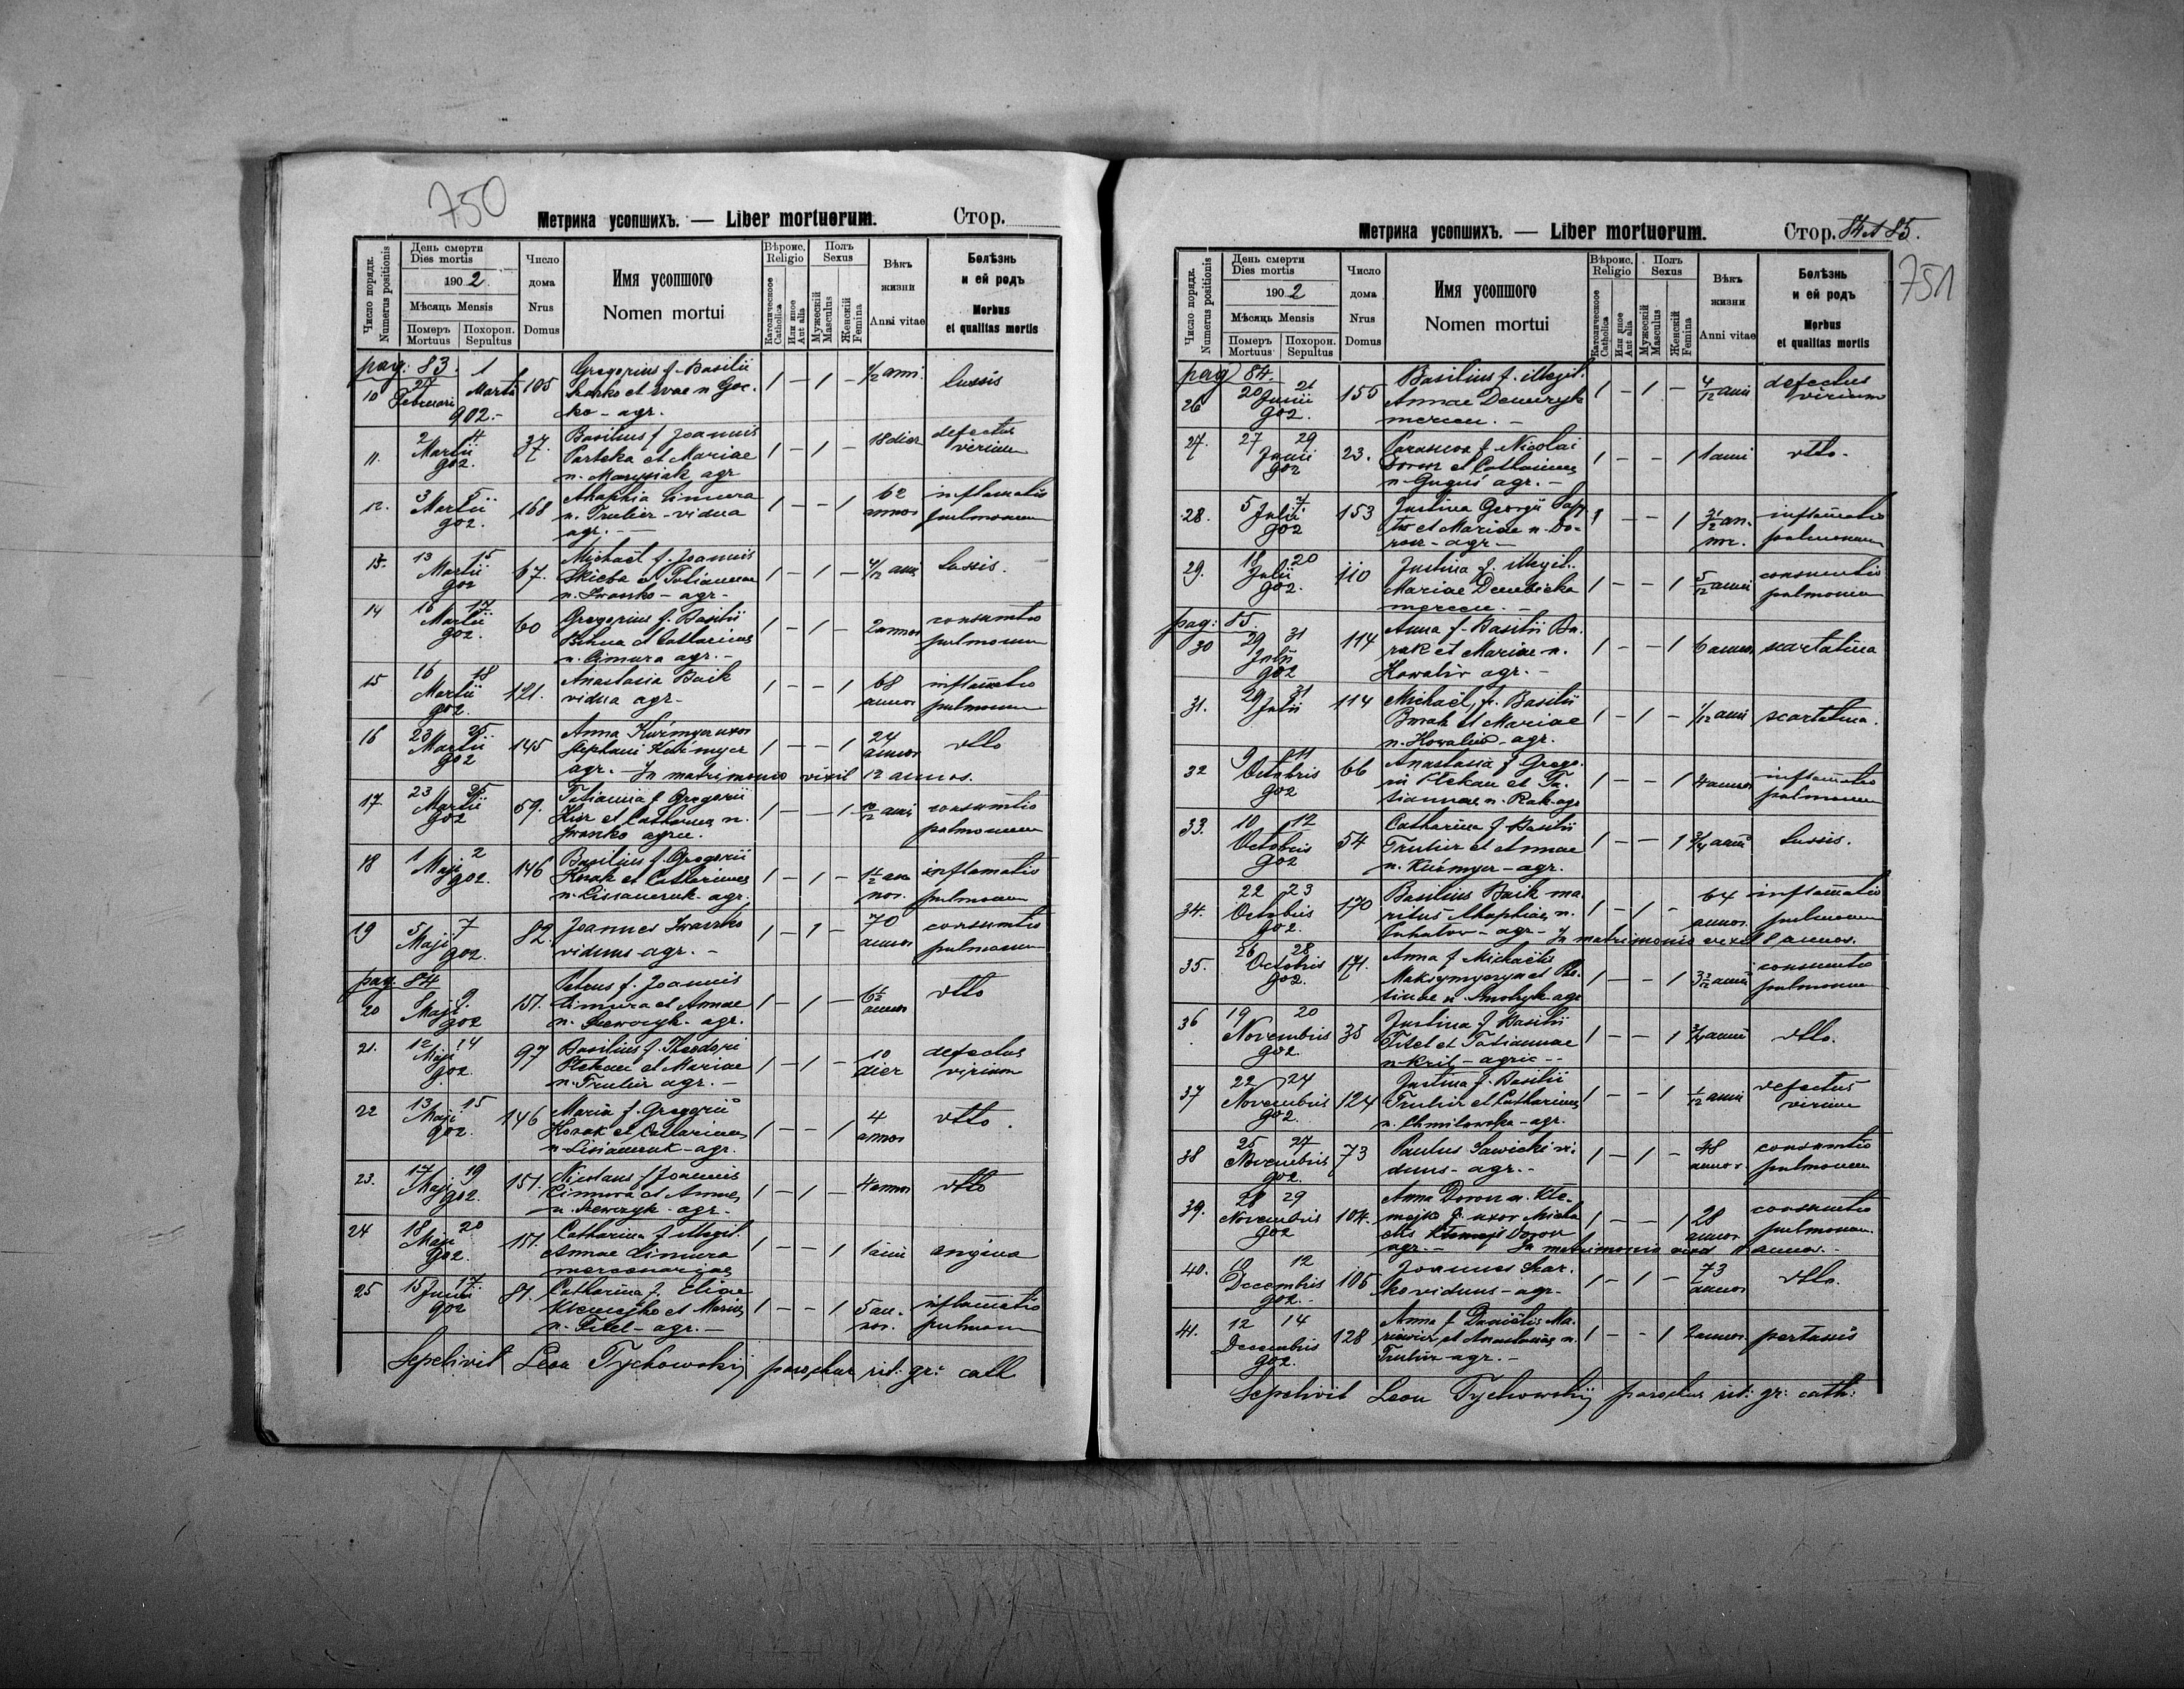 750
Метрика усопшихъ. — Liber mortuorum. Стор.
Число порядк. Numerus positionis
День смерти Dies mortis
1902
Мѣсяць Mensis
Померъ Mortuus
Похорон. Sepultus
Число дома Nrus Domus
Имя усопшого
Nomen mortui
Вѣроис. Religio
Католическоее Catholica
Или иное Aut alia
Полъ Sexus
Мужескій Masculus
Женскій Femina
Вѣкъ жизни Anni vitae
Болѣзнь и ей родъ
Morbus et qualitas mortis
pag: 83.
10 27 Februarii 1 Martii 902.- 105 Gregorius f. Basilii 1 - 1 - tussis
et Evae n.
ko - agr.
11. 2 4 Martii 902. 37. Basilius f Joannis 1 - 1 - 18 dies defectus virium
Parteka et Mariae
n. Marysiak agr
12. 3 5 Martii 902. 168 Ahaphia Cimura 1 - - 1 62 annos inflamatio pulmonum
n. Trulier - vidua
agr. -
13. 13 15 Martii 902 67. Michaël f. Joannis 1 - 1 - tussis.
Skieba et Tatiannae
n. Iwasko - agr -
14 16 17 Martii 902. 60 Gregorius f. Basilii 1 - 1 - 2 annos consumtio pulmonum
et Catharinae
n. Cimura agr. -
15 16 18 Martii 902. 121. Anastasia Baik 1 - - 1 68 annos inflamatio pulmonum
vidua agr -
16 23 25 Martii 902 145 Anna Kuśmyer uxor 1 - - 1 24 annos dtto
Stephani Kuśmyer
agr. - In matrimonio vixit 12 annos.
17. 23 25 Martii 902 59. Tatianna f. Gregorii 1 - - 1 10/12 anni consumtio pulmonum
et Catharinae n.
Iwasko agric.
18 1 2 Maji 902. 146 Basilius f. Gregorii 1 - 1 - annos. inflamatio pulmonum
Kozak et Catharinae
n. Lisianeruk - agr.
19 5 7 Maji 902. 82. Joannes Iwasko 1 - 1 - 70 annos consumtio pulmonum
viduus agr. -
pag. 84
20 8 9. Maji 902 151. Petrus f. Joannis 1 - 1 - 6 1/2 annos dtto
Cimura et Annae
n. Szewczyk. agr.
21. 12 14 Maji 902. 97 Basilius f. Theodori 1 - 1 - 10 dies defectus virium
Klekau et Mariae
n. Trulier agr. -
22 13 15 Maji 902. 146 Maria f. Gregorii 1 - - 1 4 annos dtto.
Kozak et Catharinae
n. Lisianeruk - agr.
23. 17 19 Maji 902. 151. Nicolaus f Joannis 1 - 1 - 4 annos dtto
Cimura et Annae
n. Szewczyk - agr -
24 18 20 Maji 902. 151. Catharina f illegit. 1 - - 1 1 anni angina
Annae Cimura
mercenariae
25 15 17. Junii 902 81. Catharina f. Eliae 1 - - 1 5 annos. inflamatio pulmonum
Klemejko et Mariae
n. Titel - agr. -
Sepelivit Leon Tychowskij parochus rit: gr: cath
Метрика усопшихъ. — Liber mortuorum. Стор. 84 et 85.
751
Число порядк. Numerus positionis
День смерти Dies mortis
1902
Мѣсяць Mensis
Померъ Mortuus
Похорон. Sepultus
Число дома Nrus Domus
Имя усопшого
Nomen mortui
Вѣроис. Religio
Католическоее Catholica
Или иное Aut alia
Полъ Sexus
Мужескій Masculus
Женскій Femina
Вѣкъ жизни Anni vitae
Болѣзнь и ей родъ
Morbus et qualitas mortis
pag 84.
26 20 21 Junii 902. 155 Basilius f. illegit. 1 - 1 - 4/12 anni defectus virium
Annae Demczyk
mercen. -
27. 27 29 Junii 902 23. Parascva f. Nicolai 1 - - 1 1 anni dtto.
Dorosz et Catharinae
n. Guguś agr. -
28. 5 7. Julii 902 153 Justina Georgii 1 - - 1 inflamatio pulmonum
et Mariae n. Do-
rosz - agr. -
29. 18 20 Julii 902. 110 Justina f. illegit. 1 - - 1 5/12 anni consumtio pulmonum
Mariae Dembicka
mercen. -
pag: 85.
30 29 31 Julii 902 114 Anna f. Basilii Bu- 1 - - 1 6 annos scarlatina
rak et Mariae n.
Kowaliw agr. -
31. 29 31 Julii 114 Michaël f. Basilii 1 - 1 - 1/12 anni scarlatina.
Burak et Mariae
n. Kowaliw - agr.
32 9 11 Octobris 902 66 Anastasia f. Grego- 1 - - 1 4 annos inflamatio pulmonum
rii Klekau et Ta-
tiannae n. Rak agr
33. 10 12 Octobris 902 54 Catharina f. Basilii 1 - - 1 3/4 anni tussis.
Trulier et Annae
n. Kuśmyer - agr.
34. 22 23 Octobris 902. 170 Basilius Baik ma- 1 - 1 - 64 annos. inflamatio pulmonum
ritus Ahaphiae n.
agr - In matrimonio vixit 8 annos.
35. 26 28 Octobris 902. 171. Anna f Michaëlis 1 - - 1 consumtio pulmonum
agr
36 19 20 Novembris 902. 35 Justina f. Basilii 1 - - 1 3/4 anni dtto.
Titel et Tatiannae
n. Kril - agric - -
37 22 24 Novembris 902. 124 Justina f. Basilii 1 - - 1 1/12 anni defectus virium
Trulier et Catharinae
n. Chmilowska - agr.
38 25 27 Novembris 902. 73 Paulus Sawicki vi- 1 - 1 - 48 annos consumtio pulmonum
duus - agr. -
39. 28 29 Novembris 902 104. Anna Dorosz n. Kle- 1 - - 1 28 annos consumtio pulmonum.
mejko uxor Micha
elis Dorosz
agr. - In matrimonio vixit annos. -
40. 10 12 Decembris 902. - 105 Joannes Szar- 1 - 1 - 73 annos dtto.
ko viduus - agr -
41. 12 14 Decembris 902. 128 Anna f Daniëlis Ma- 1 - - 1 2 annos. pertussis
et Anastasiae n.
Trulier agr. -
Sepelivit Leon Tychowskij parochus rit: gr: cath: